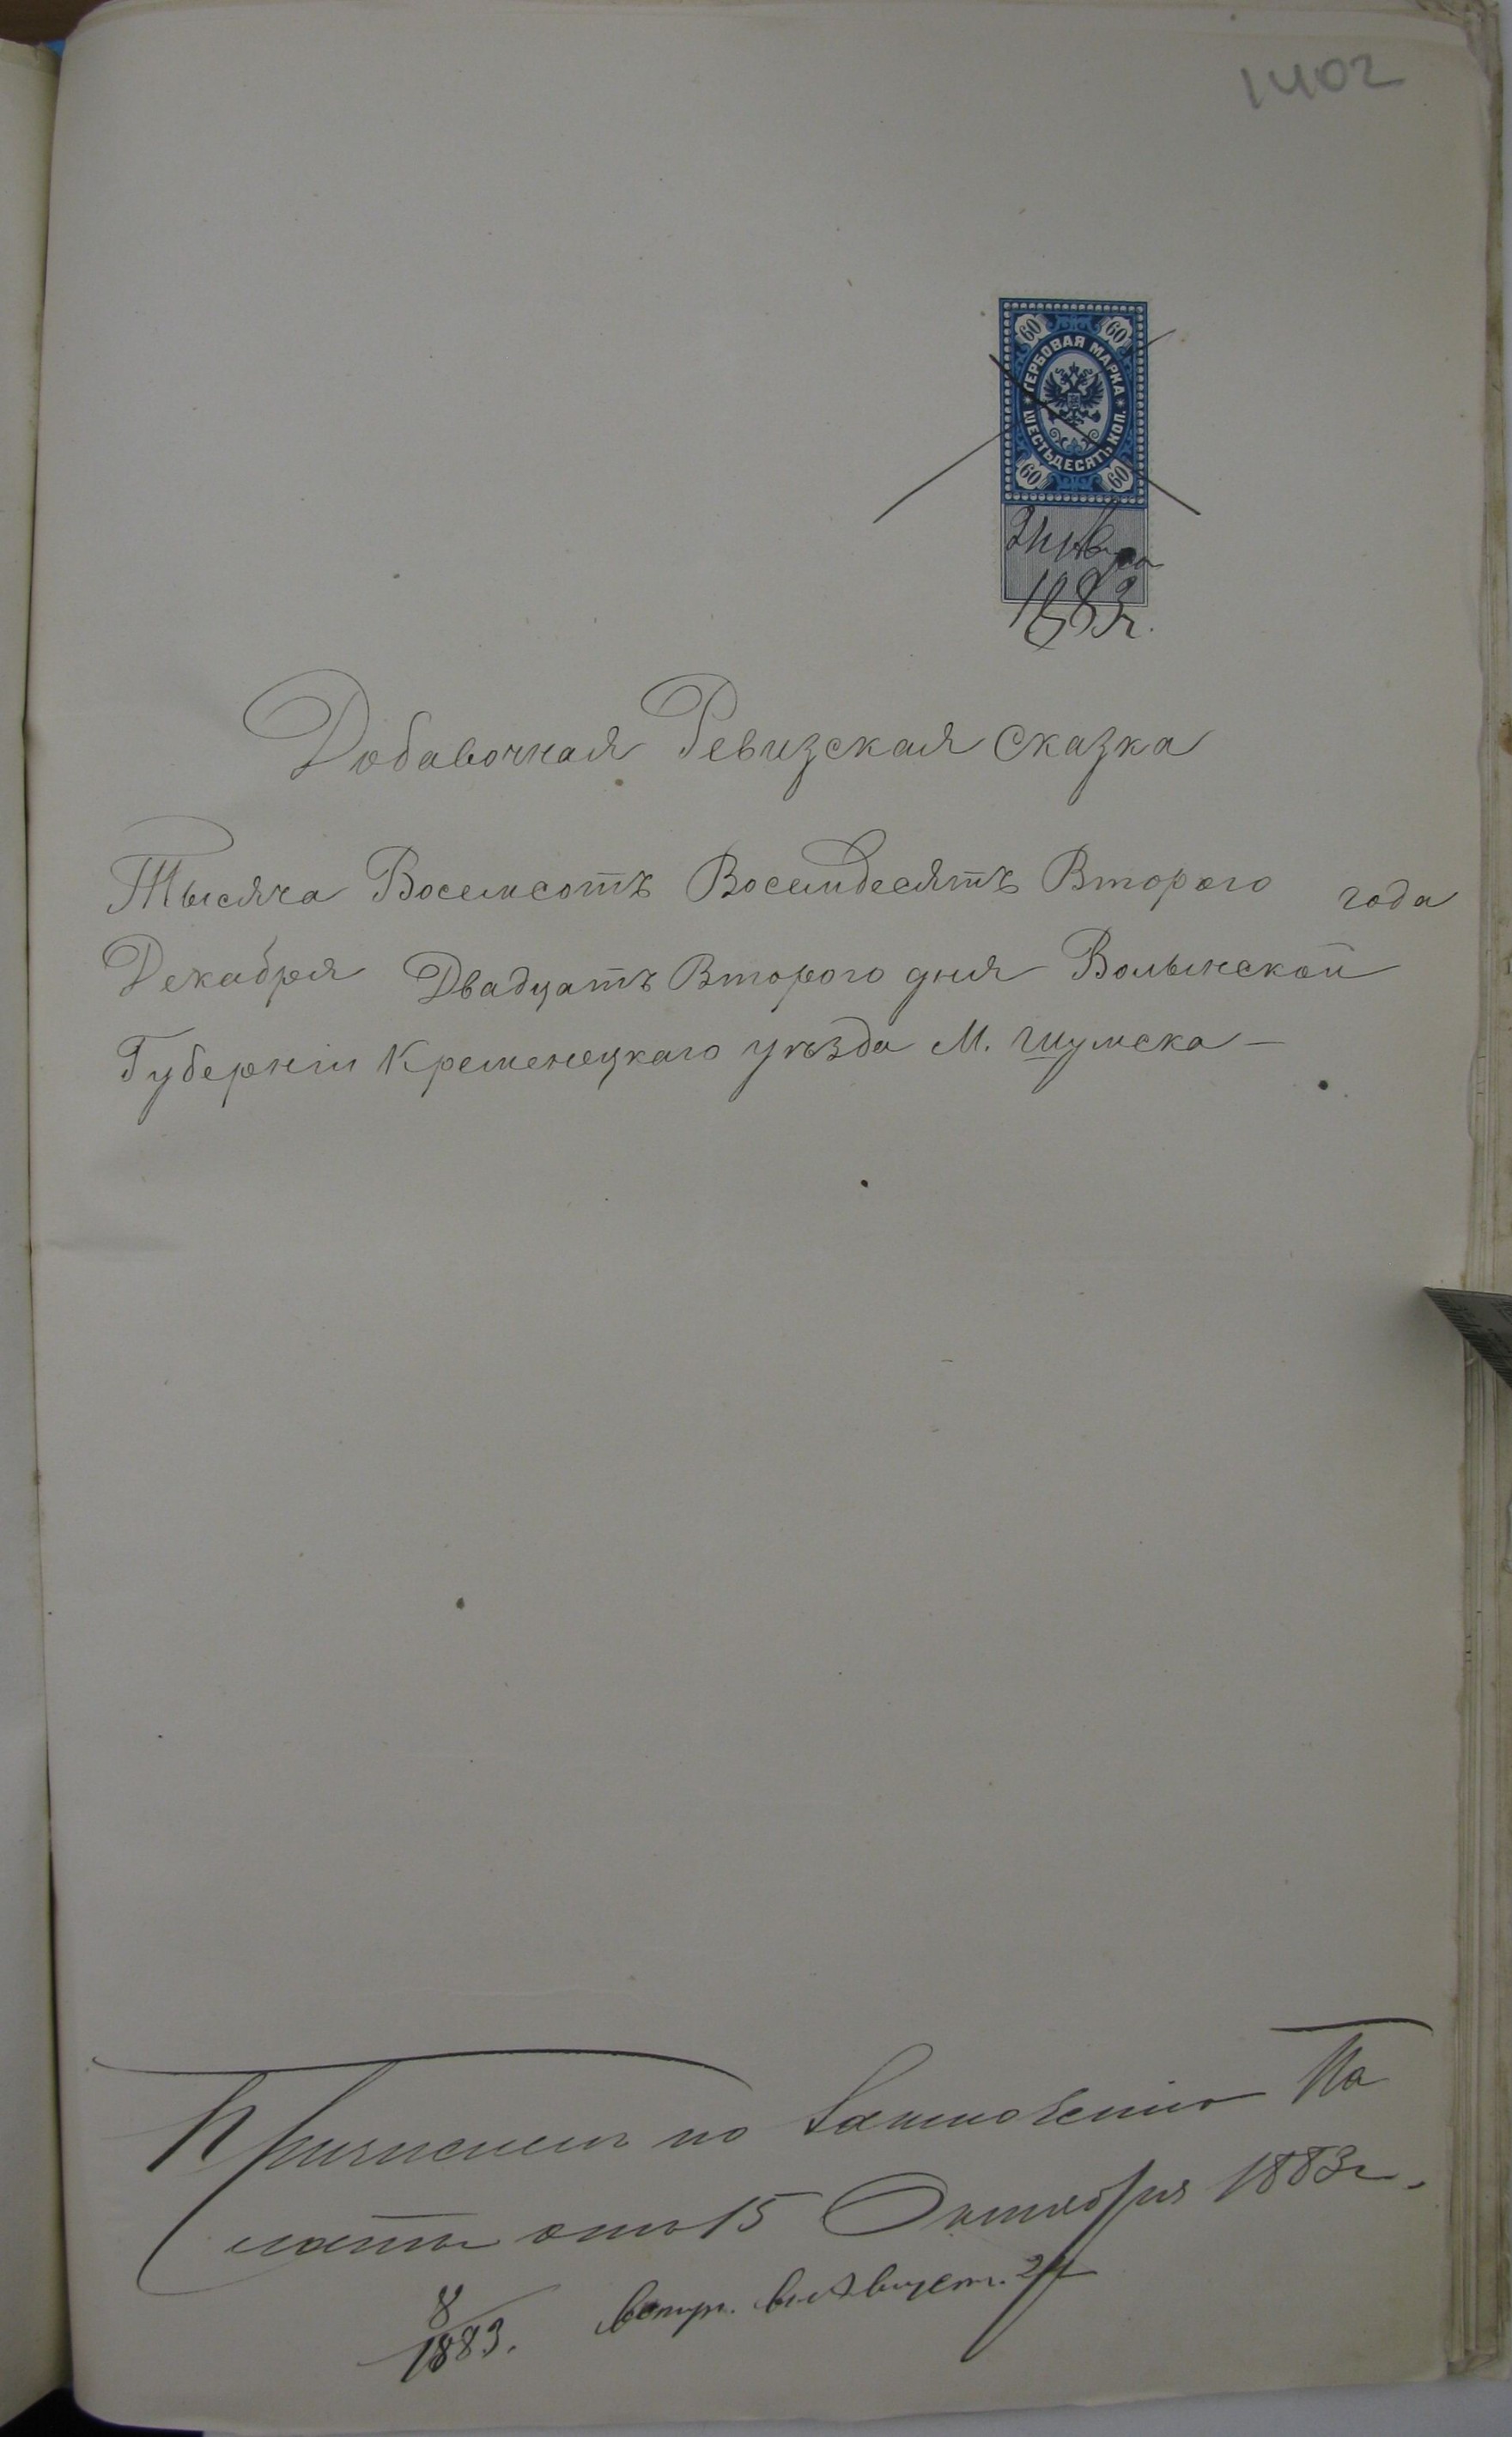 1402
60 60
ГЕРБОВАЯ МАРКА
ШЕСТЬДЕСЯТЪ КОП.
60 60
Января
1883 г.
Добавочная Ревизская сказка
Тысяча Восемсотъ Восемдесятъ Второго года
Декабря Двадцать Второго дня Волынской
Губерніи Кременецкаго уѣзда М. Шумска —
Причислены по постановленію Па
латы отъ 15 Октября 1883 г.
8
1883.